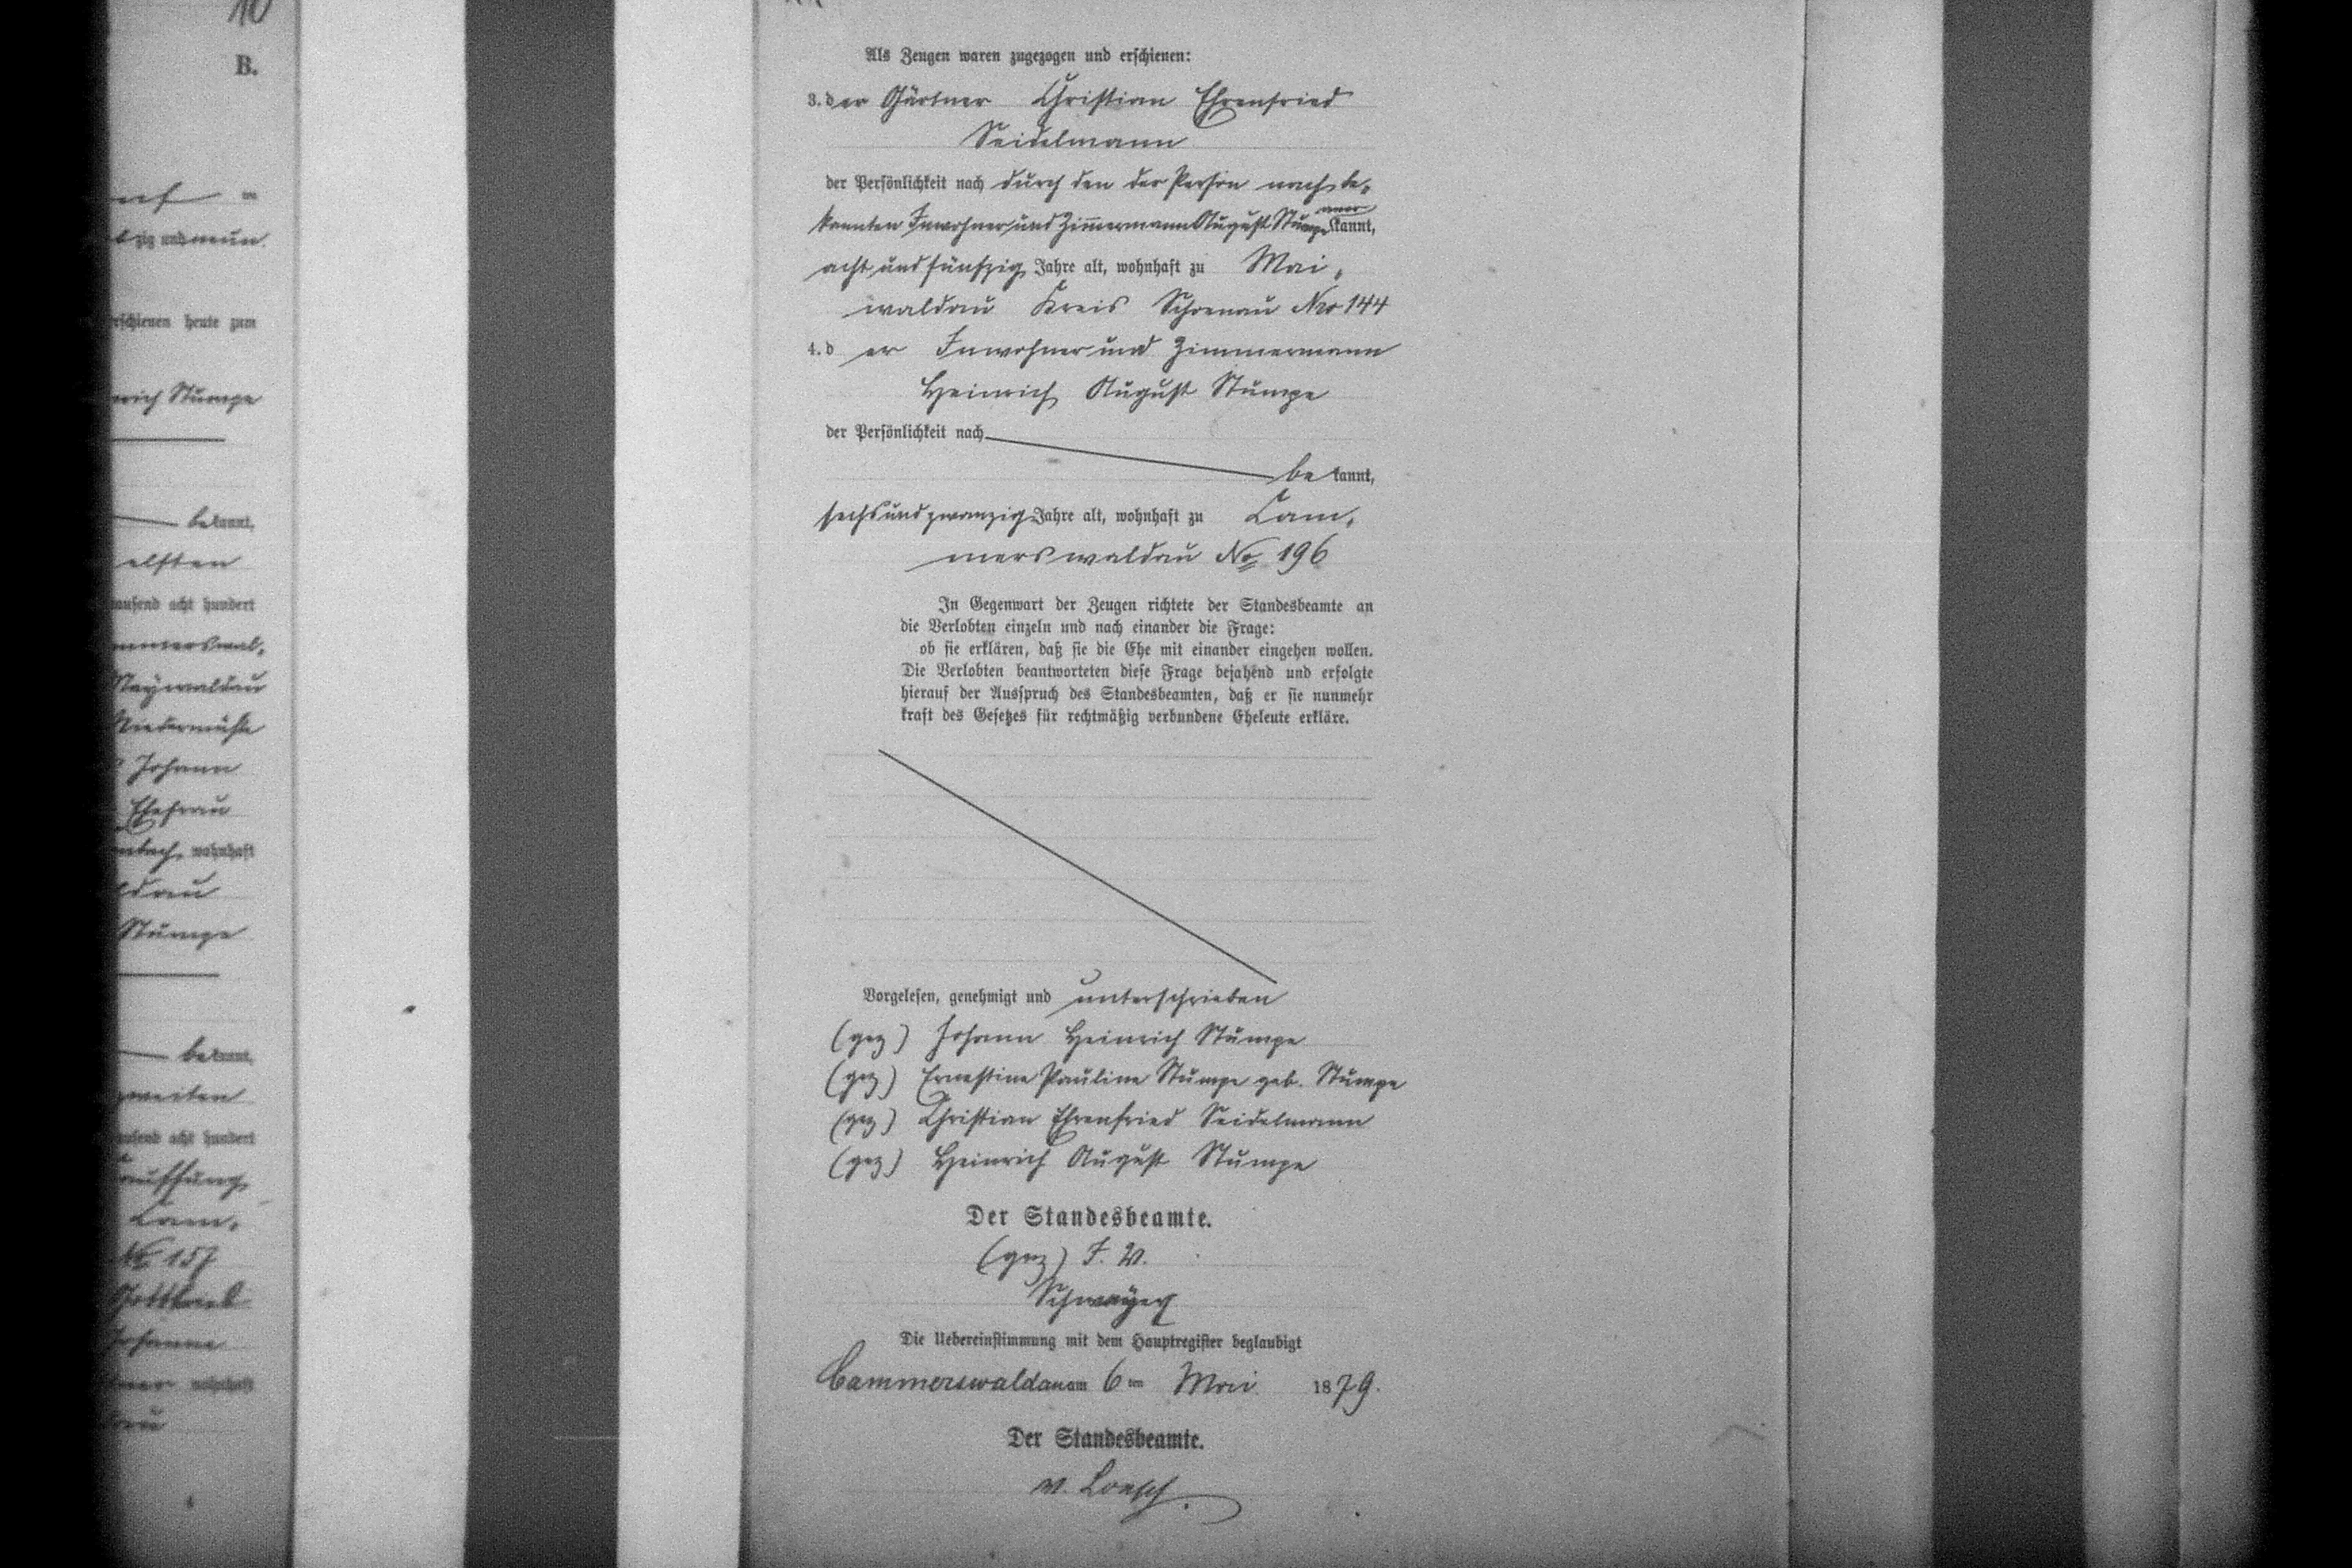 10
B.
zig und neun
erschienen heute zum
Stumpe
bekannt,
elften
tausend acht hundert
Maywaldau
Niedermühle
Johann
Ehefrau
wohnhaft
ldau
Stumpe
bekannt,
zweiten
tausend acht hundert
Kauffung
Cam-
No 157
Gottlieb
Johanne
wohnhaft
dau
Als Zeugen waren zugezogen und erschienen:
3. der Gärtner Christian Ehrenfried
Seidelmann
der Persönlichkeit nach durch den der Person nach be-
kannten Inwohner und Zimmermann August Stumpe anerkannt,
acht und fünfzig Jahre alt, wohnhaft zu Mai-
waldau Kreis Schoenau Nro 144
4. d er Inwohner und Zimmermann
Heinrich August Stumpe
der Persönlichkeit nach
be kannt,
sechs und zwanzig Jahre alt, wohnhaft zu Cam-
merswaldau No 196
In Gegenwart der Zeugen richtete der Standesbeamte an
die Verlobten einzeln und nach einander die Frage:
ob sie erklären, daß sie die Ehe mit einander eingehen wollen.
Die Verlobten beantworteten diese Frage bejahend und erfolgte
hierauf der Ausspruch des Standesbeamten, daß er sie nunmehr
kraft des Gesetzes für rechtmäßig verbundene Eheleute erkläre.
Vorgelesen, genehmigt und unterschrieben
(gez) Johann Heinrich Stumpe
(gez) Ernestine Pauline Stumpe geb. Stumpe
(gez) Christian Ehrenfried Seidelmann
(gez) Heinrich August Stumpe
Der Standesbeamte.
(gez) I. V.
Schwayer
Die Uebereinstimmung mit dem Hauptregister beglaubigt
Cammerswaldau am 6 ten Mai 1879.
Der Standesbeamte.
v. Loesch.